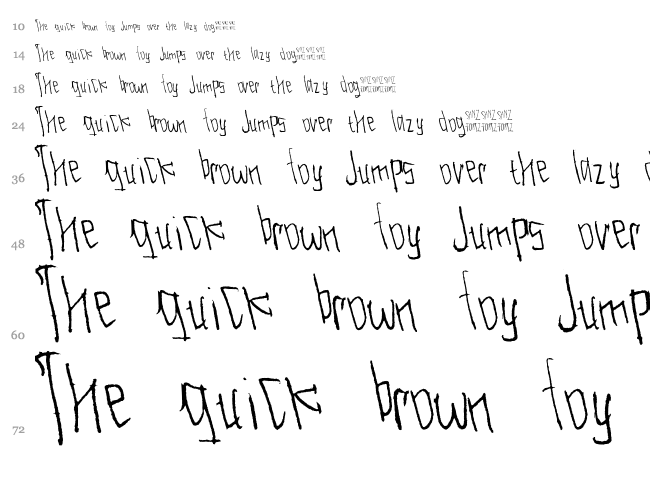 10 The quick brown fox Jumps over the lazy dog
14 The quick brown fox Jumps over the lazy dog
18 The quick brown fox Jumps over the lazy dog
24 The quick brown fox Jumps over the lazy dog
36 The quick brown fox Jumps over the lazy
48 The quick brown fox Jumps over
60 The quick brown fox Jump
72 The quick brown fox